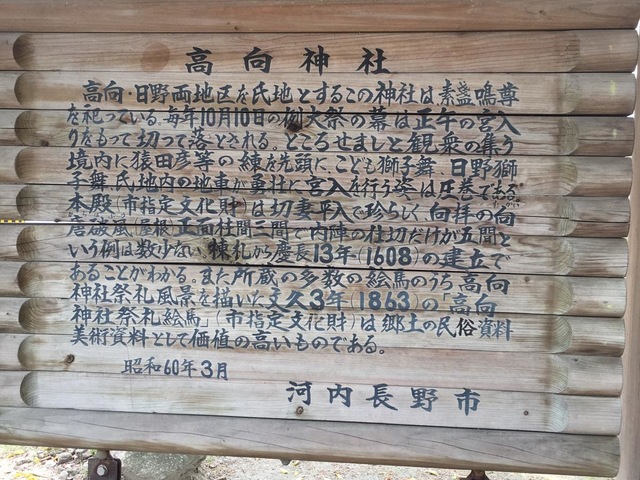 高向神社
高向・日野両地区を氏地とするこの神社は素盞鳴尊
を祀っている。毎年10月10日の例大祭の幕は正午の宮入
りをもって切って落とされる。ところせましと観衆の集う
境内に猿田彦尊の練を先頭に、こども獅子舞、日野獅
子舞、氏地内の地車が当社に宮入を行う姿は圧巻である。
本殿(市指定文化財)は切妻平入で珍らしく、向拝の向
唐破風(屋根)正面柱間三間で内陣の仕切だけが五間と
いう例は数少ない。棟札から慶長13年(1608)の建立で
あることがわかる。また所蔵の多数の絵馬のうち高向
神社祭礼風景を描いた文久3年(1863)の「高向
神社祭礼絵馬」(市指定文化財)は郷土の民俗資料
美術資料として価値の高いものである。
昭和60年3月
河内長野市